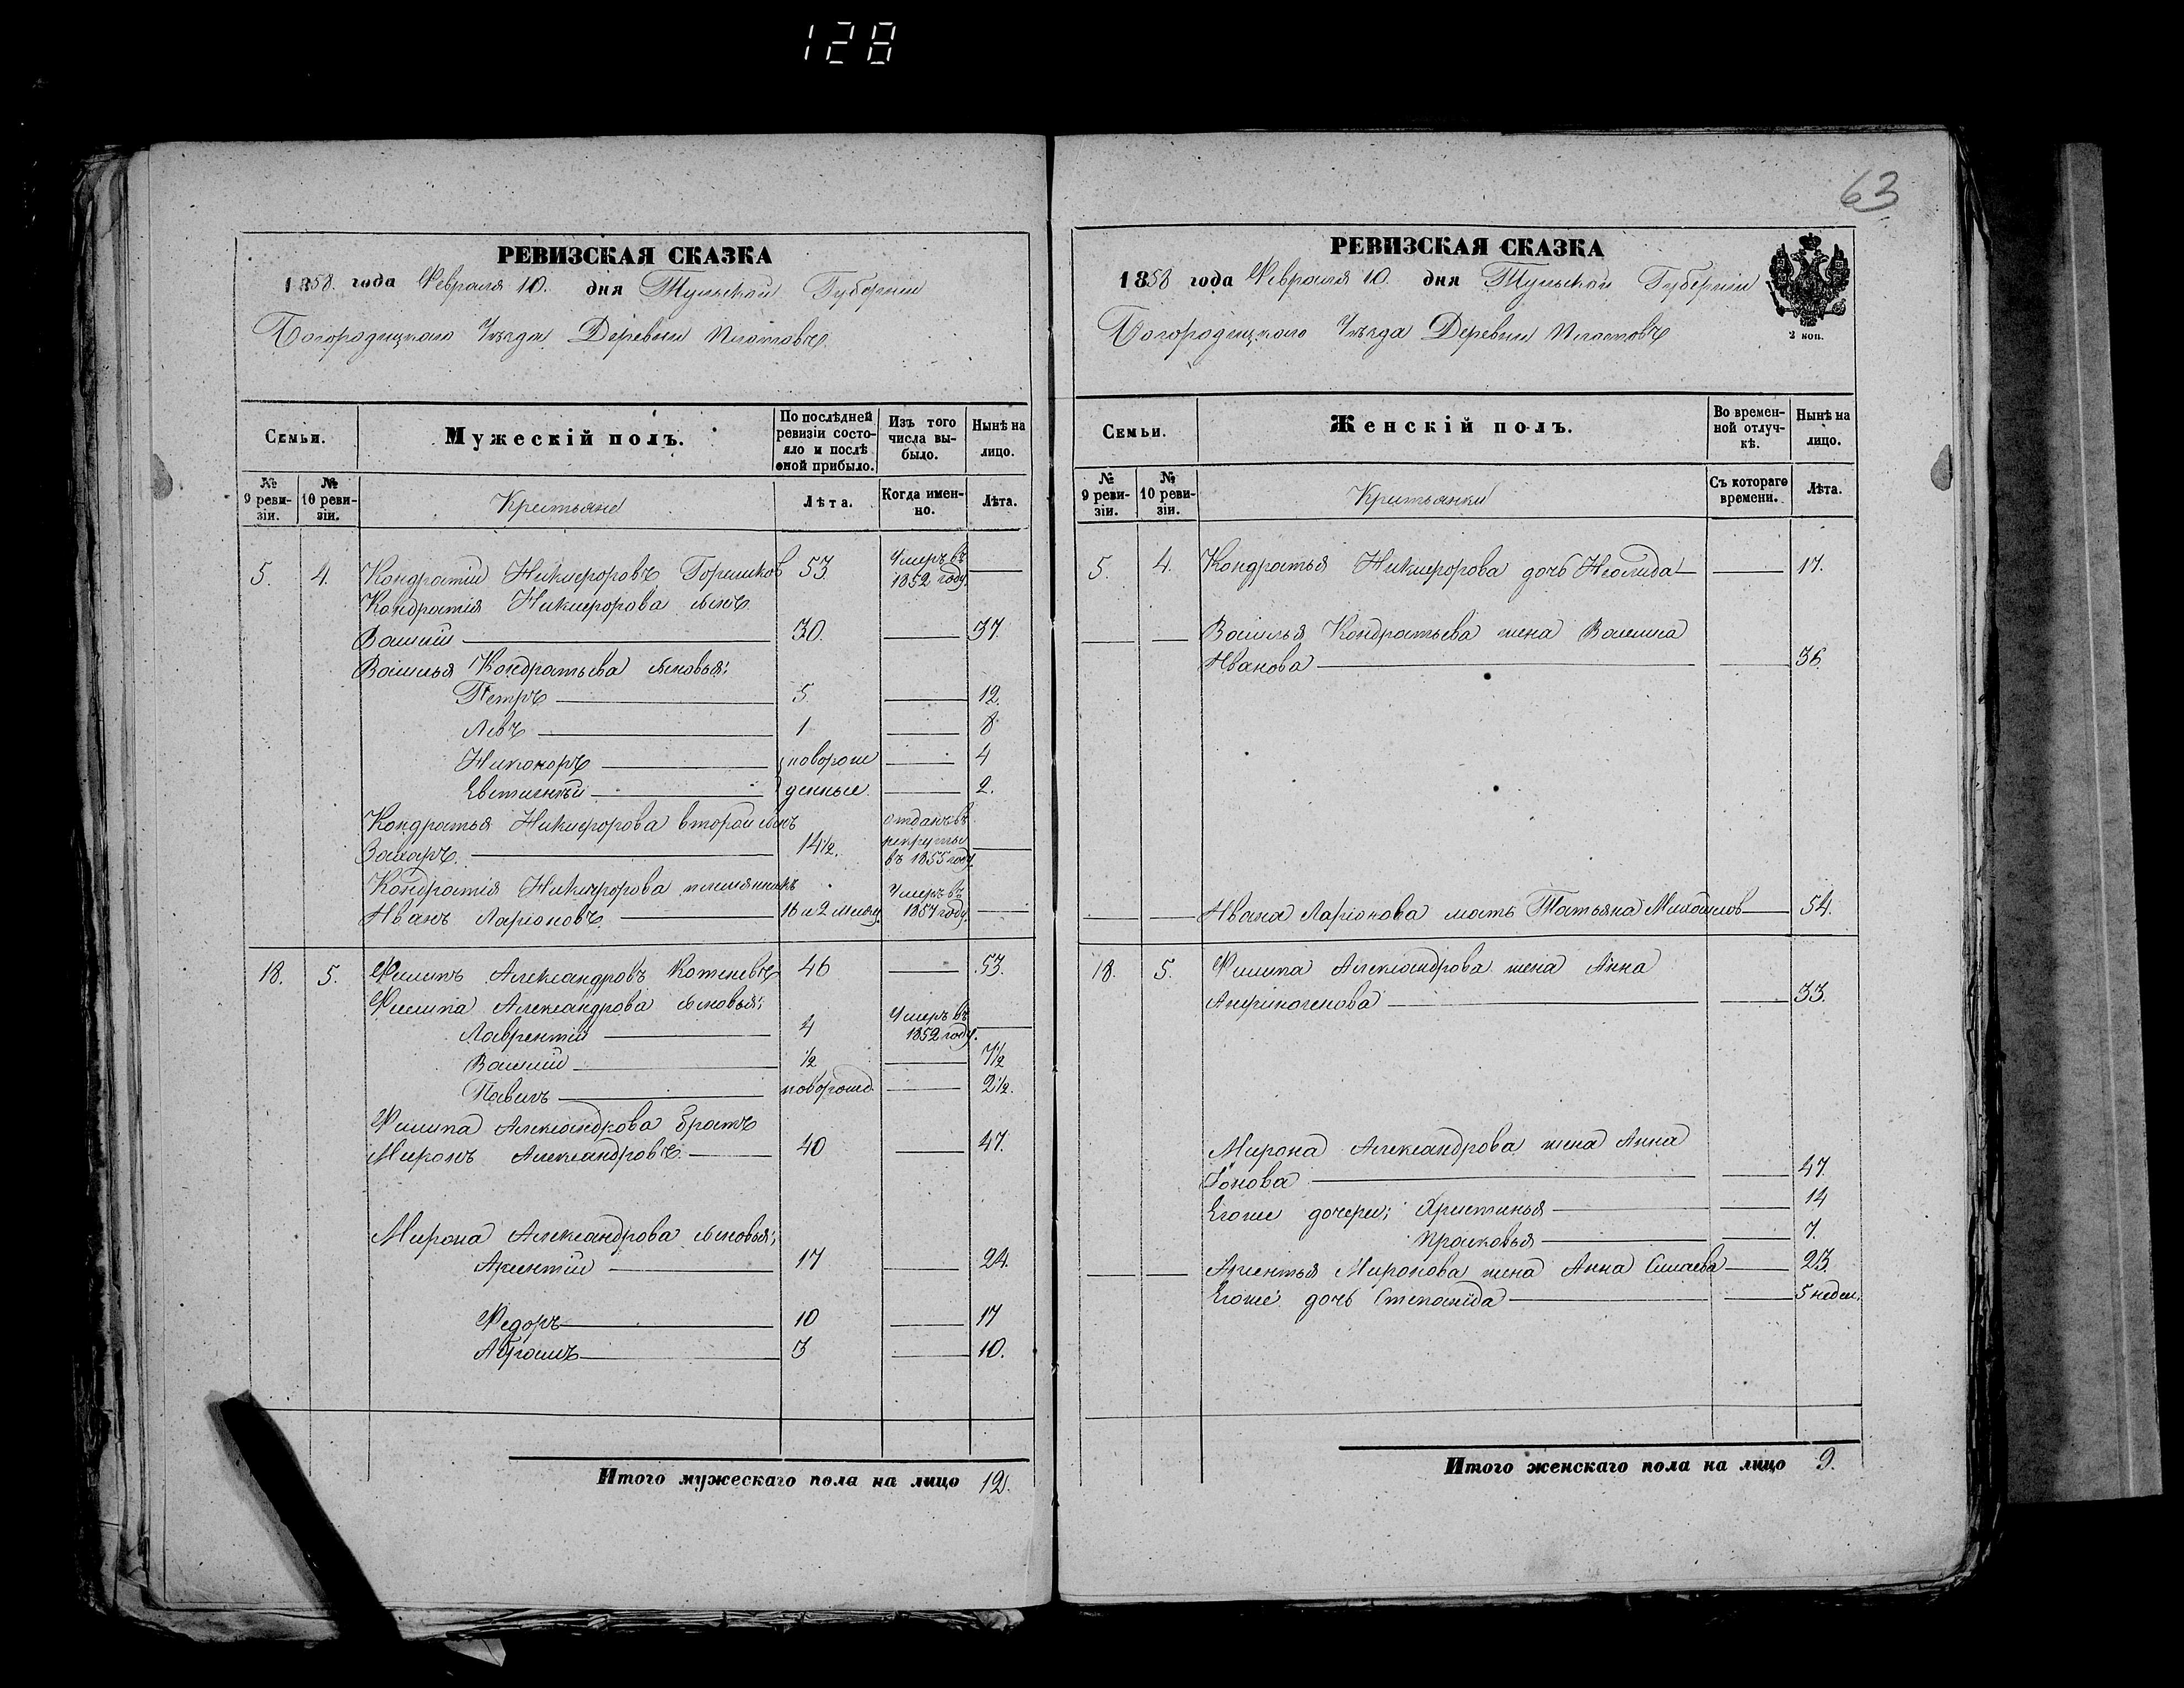 128
63
РЕВИЗСКАЯ СКАЗКА
1858. года Февраля 10. дня Тульской Губернии
Богородицкаго Уѣзда Деревни
Семьи.
Мужескій полъ.
По послѣдней ревизіи состояло и послѣ оной прибыло.
Изъ того числа выбыло.
Нынѣ на лицо.
№ 9 ревизіи.
№ 10 ревизіи.
Крестьяне
Лѣта.
Когда именно.
Лѣта.
5. 4. Кондратій Никифоровъ Горшков 53 Умеръ въ 1852 году
Кондратія Никифорова сынъ
Василій 30. 37.
Василья Кондратьева сыновья:
Петръ 5 12.
Левъ 1 8
Никоноръ новорож 4
Евстигнѣй денные 2.
Кондратья Никифорова второй сынъ отданъ въ
Захаръ 14½. рекруты въ 1855 году
Кондратія Никифорова племянникъ Умеръ въ
Иванъ Ларіоновъ 16 и 2 месяц. 1857 году
18. 5. Филипъ Александровъ Котеневъ 46 53.
Филипа Александрова сыновья: Умеръ въ
Лаврентій 4 1852 году.
Василій ½ 7½
Павелъ новорожд. 2½.
Филипа Александрова братъ
Миронъ Александровъ 40 47.
Мирона Александрова сыновья:
Арсентій 17 24.
Федоръ 10 17
Абрамъ 3 10.
Итого мужескаго пола на лицо 12.
РЕВИЗСКАЯ СКАЗКА
1858 года Февраля 10. дня Тульской Губерніи
Богородицкаго Уѣзда Деревни
3 коп.
Семьи.
Женскій полъ.
Во временной отлучкѣ.
Нынѣ на лицо.
№ 9 ревизіи.
№ 10 ревизіи.
Крестьянки
Съ котораго времени.
Лѣта.
5. 4. Кондратья Никифорова дочь 17.
Василья Кондратьева жена Васелиса
Иванова 36
Ивана Ларіонова мать Татьяна Михайлов 54.
18. 5. Филипа Александрова жена Анна
Анфиногенова 33.
Мирона Александрова жена Анна
47.
Егоже дочери: Христинья 14
Прасковья 7.
Арсентья Миронова жена Анна 23.
Егоже дочь Степанида 5 недел.
Итого женскаго пола на лицо 9.